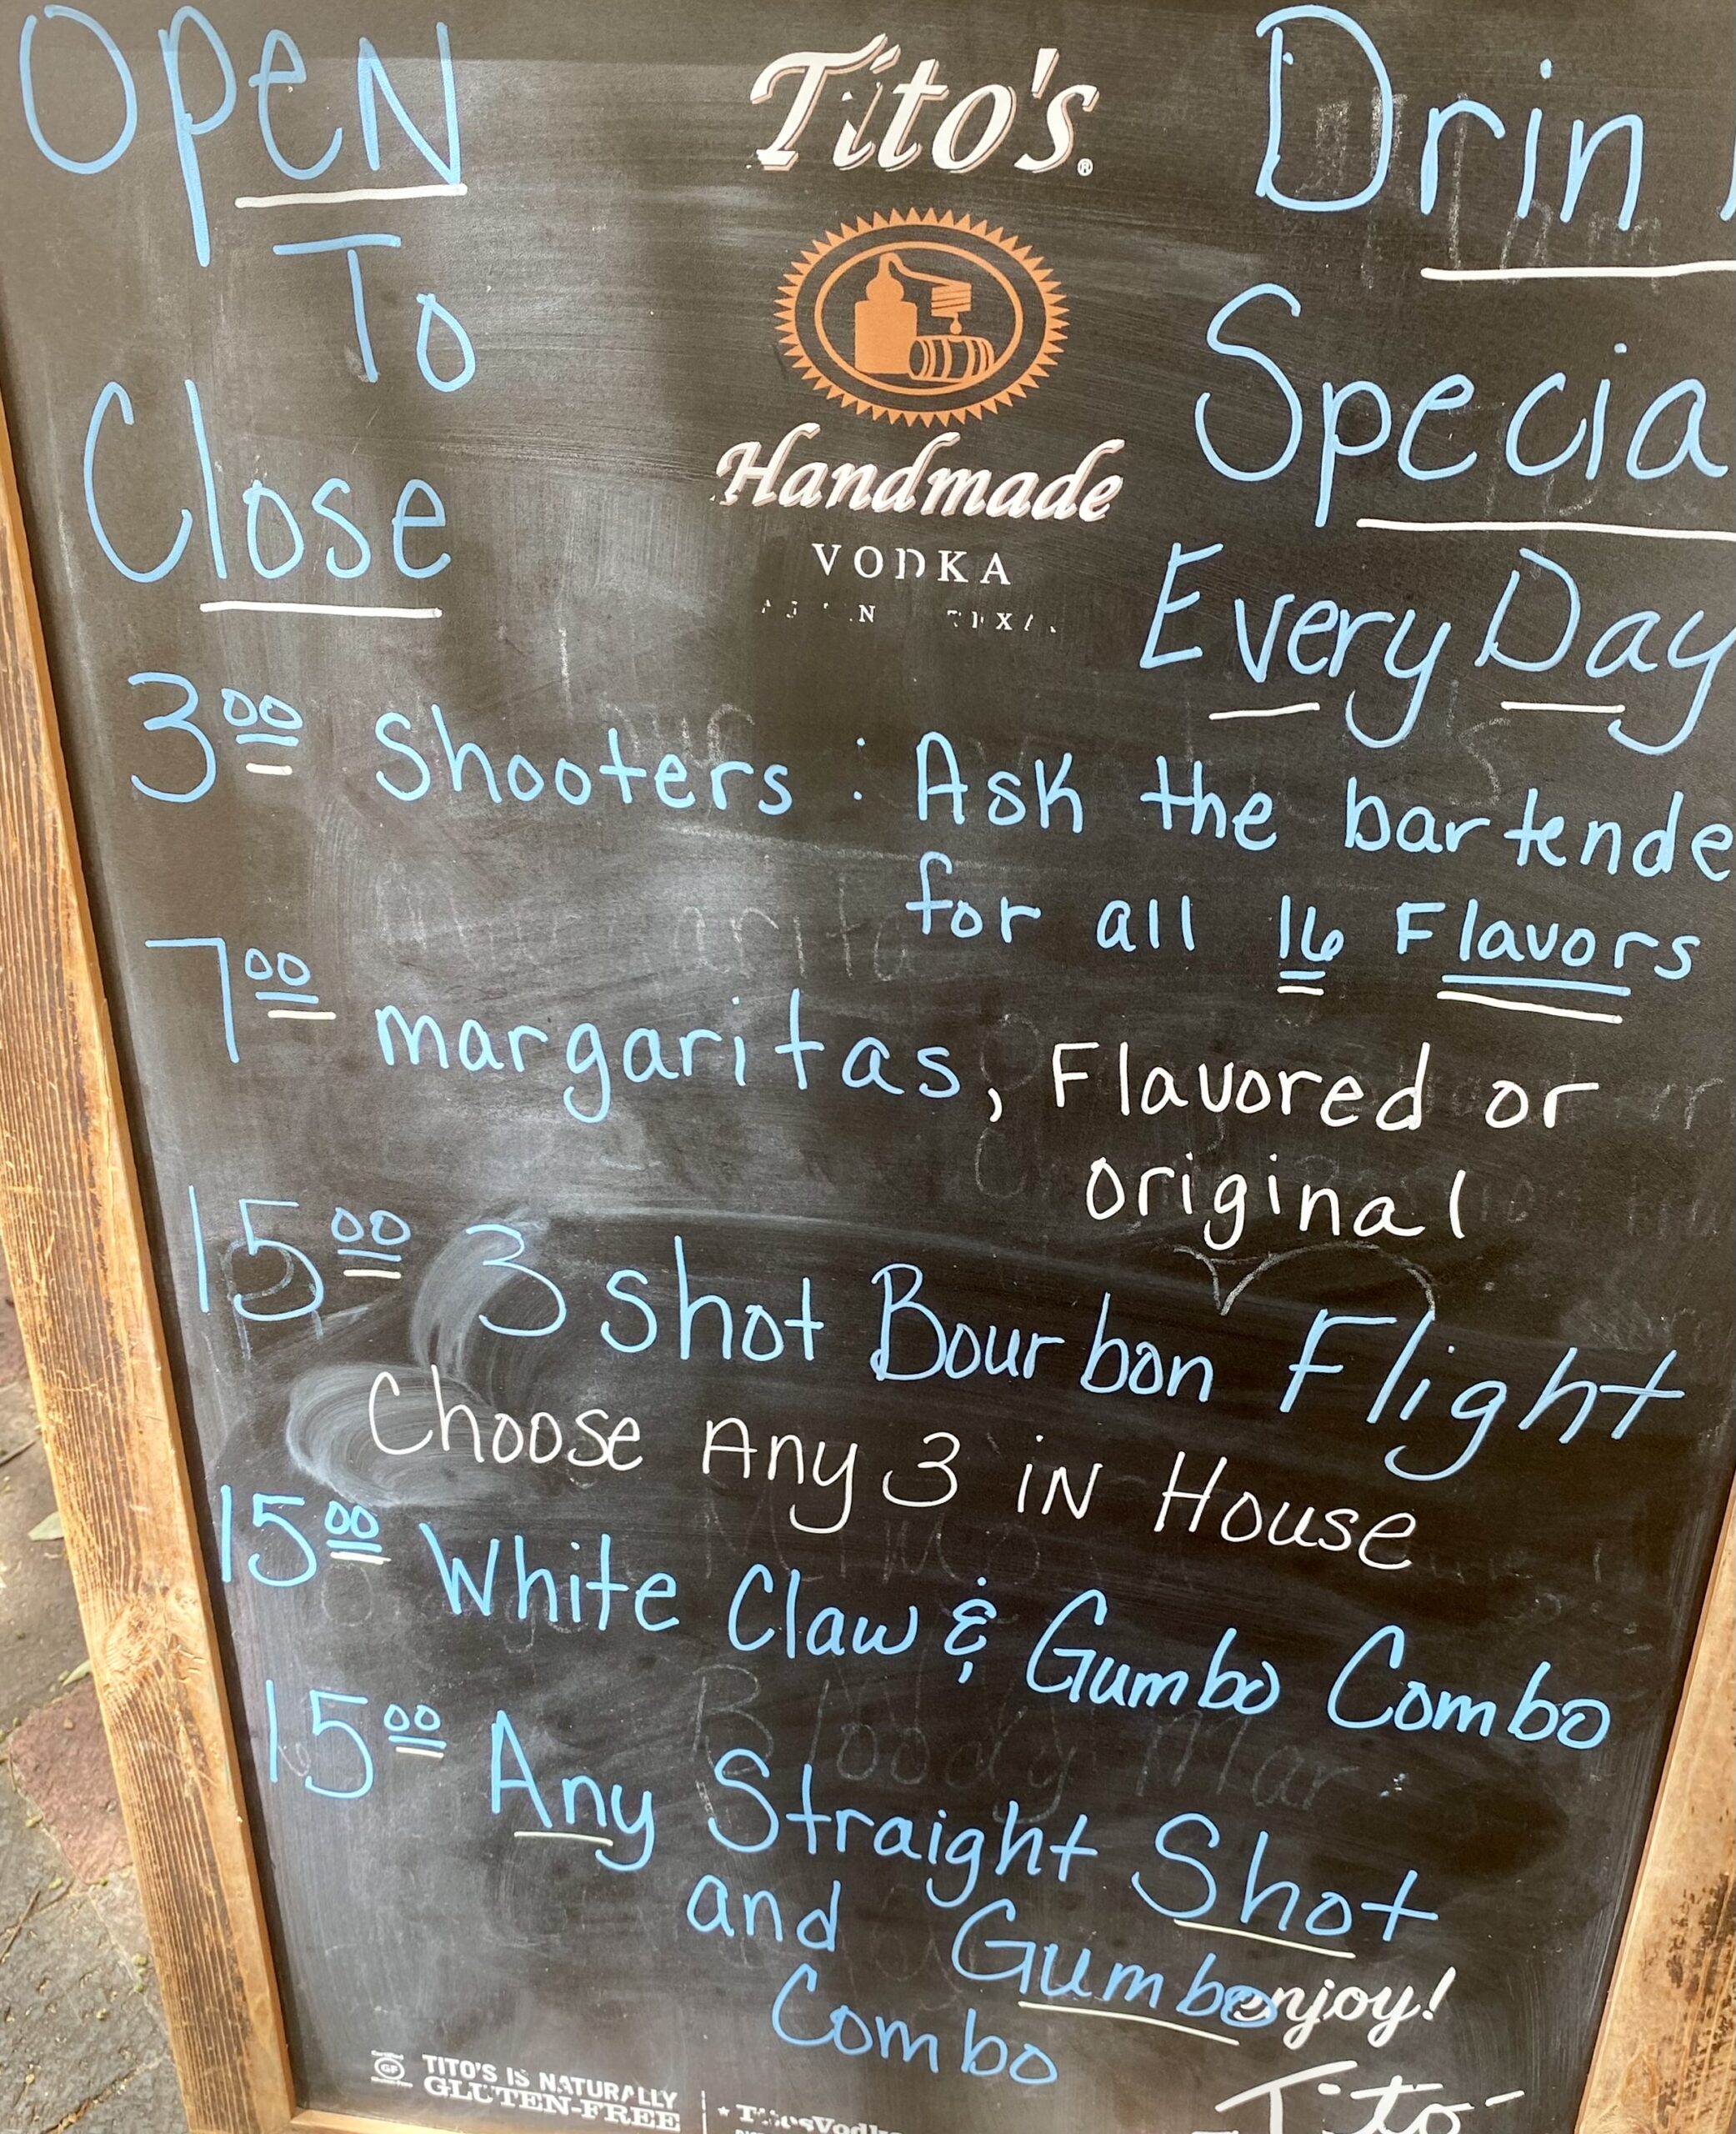 Open
To
Close
Tito's®
Handmade
VODKA
Drin
Specia
Every Day
3.00 Shooters : Ask the bartende
for all 16 Flavors
7.00 margaritas, Flavored or
original
15.00 3 shot Bourbon Flight
Choose Any 3 in House
15.00 White Claw & Gumbo Combo
15.00 Any Straight Shot
and Gumbo
Combo
enjoy!
Tito
Certified
GF
TITO'S IS NATURALLY
GLUTEN-FREE